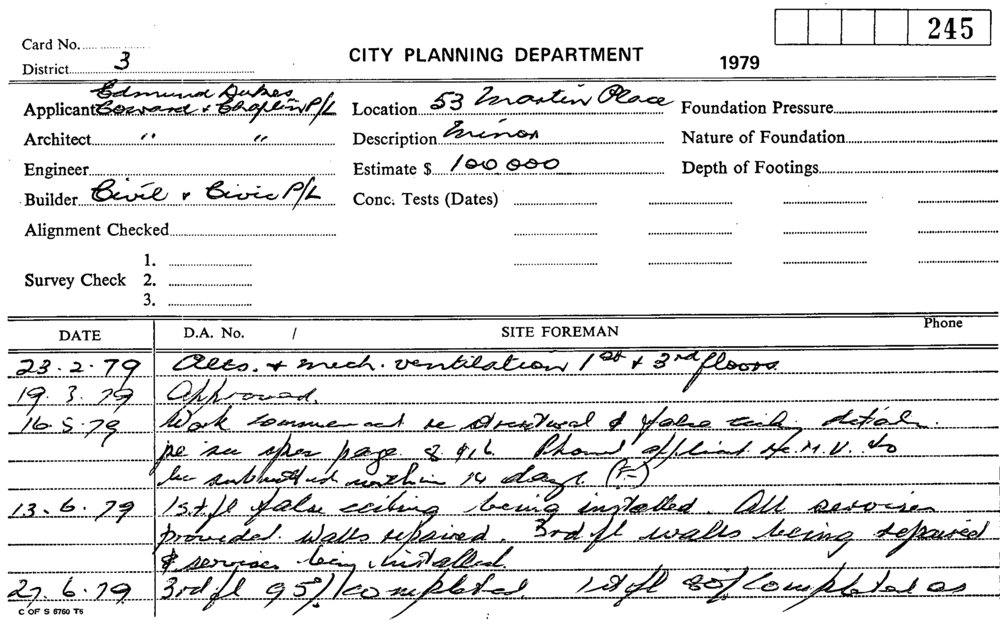 245
Card No.
District 3
CITY PLANNING DEPARTMENT
1979
Edmund Dukes
Applicant Coward & Chaplin P/L
Location 53 Martin Place
Foundation Pressure
Architect " "
Description Minor
Nature of Foundation
Engineer
Estimate $ 100 000
Depth of Footings
Builder Civil & Civic P/L
Conc. Tests (Dates)
Alignment Checked
1.
Survey Check 2.
3.
DATE D.A. No. / SITE FOREMAN Phone
23.2.79 Alts. & mech. ventilation 1st & 3rd floors
19.3.79 Approved.
16.5.79 Work commenced re structural & false ceiling details
page 8 Phoned applicant to
be submitted within 14 days
13.6.79 1st fl false ceiling being installed. All services
provided. Walls repaired. 3rd fl walls being repaired
& services being installed.
27.6.79 3rd fl 95% completed. 1st fl 80% completed as
C OF S 6760 T6